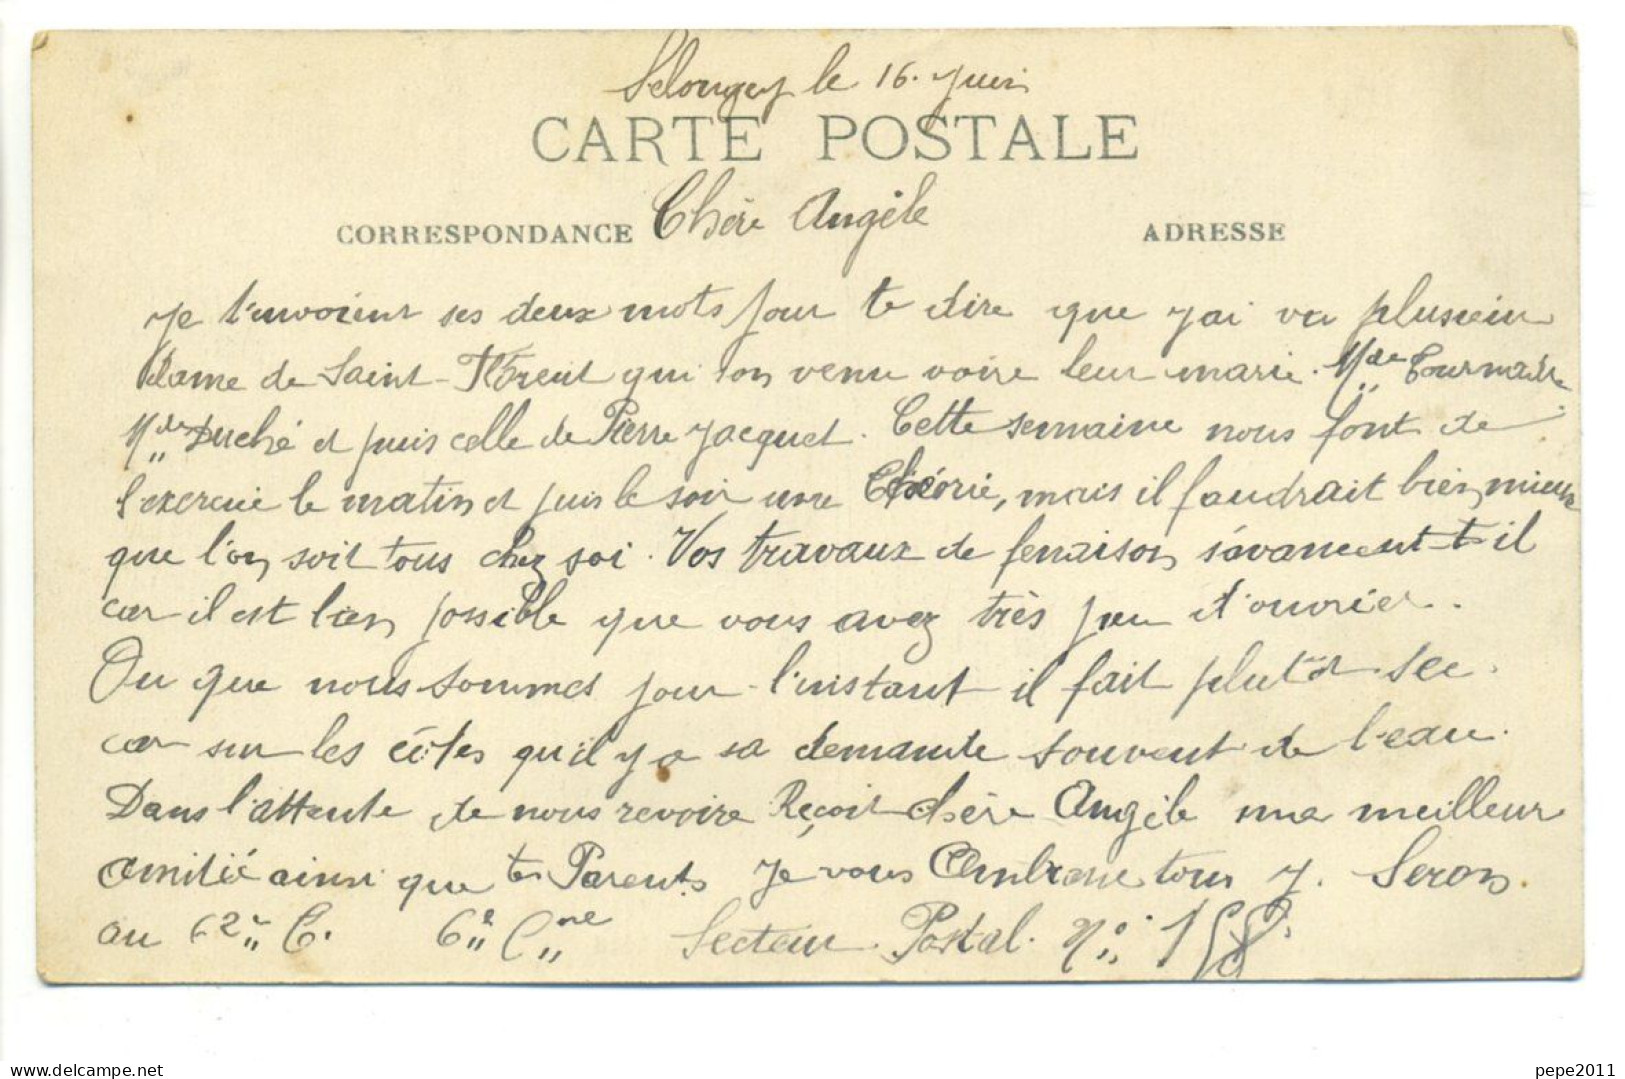 Selongey le 16. Juin
CARTE POSTALE
CORRESPONDANCE Chère Angèle ADRESSE
Je t'envoient ses deux mots pour te dire que j'ai vu plusieur
dame de Saint-Florent qui son venu voire leur marie. Mde
Mde Duché et puis celle de Pierre Jacquet. Cette semaine nous font de
l'exercice le matin et puis le soir une Théorie, mais il faudrait bien mieux
que l'on soit tous chez soi. Vos travaux de fenaison s'avancent-t-il
car il est bien possible que vous avez très peu d'ouvrier.
Ou que nous sommes pour l'instant il fait plutôt sec.
car sur les côtes qu'il y a sa demande souvent de l'eau.
Dans l'attente de nous revoire Reçoit chère Angèle ma meilleur
amitié ainsi que tes Parents Je vous Embrasse tous J. Seron.
au 62e,, 6e Cne Secteur Postal. No
pepe2011
www.delcampe.net